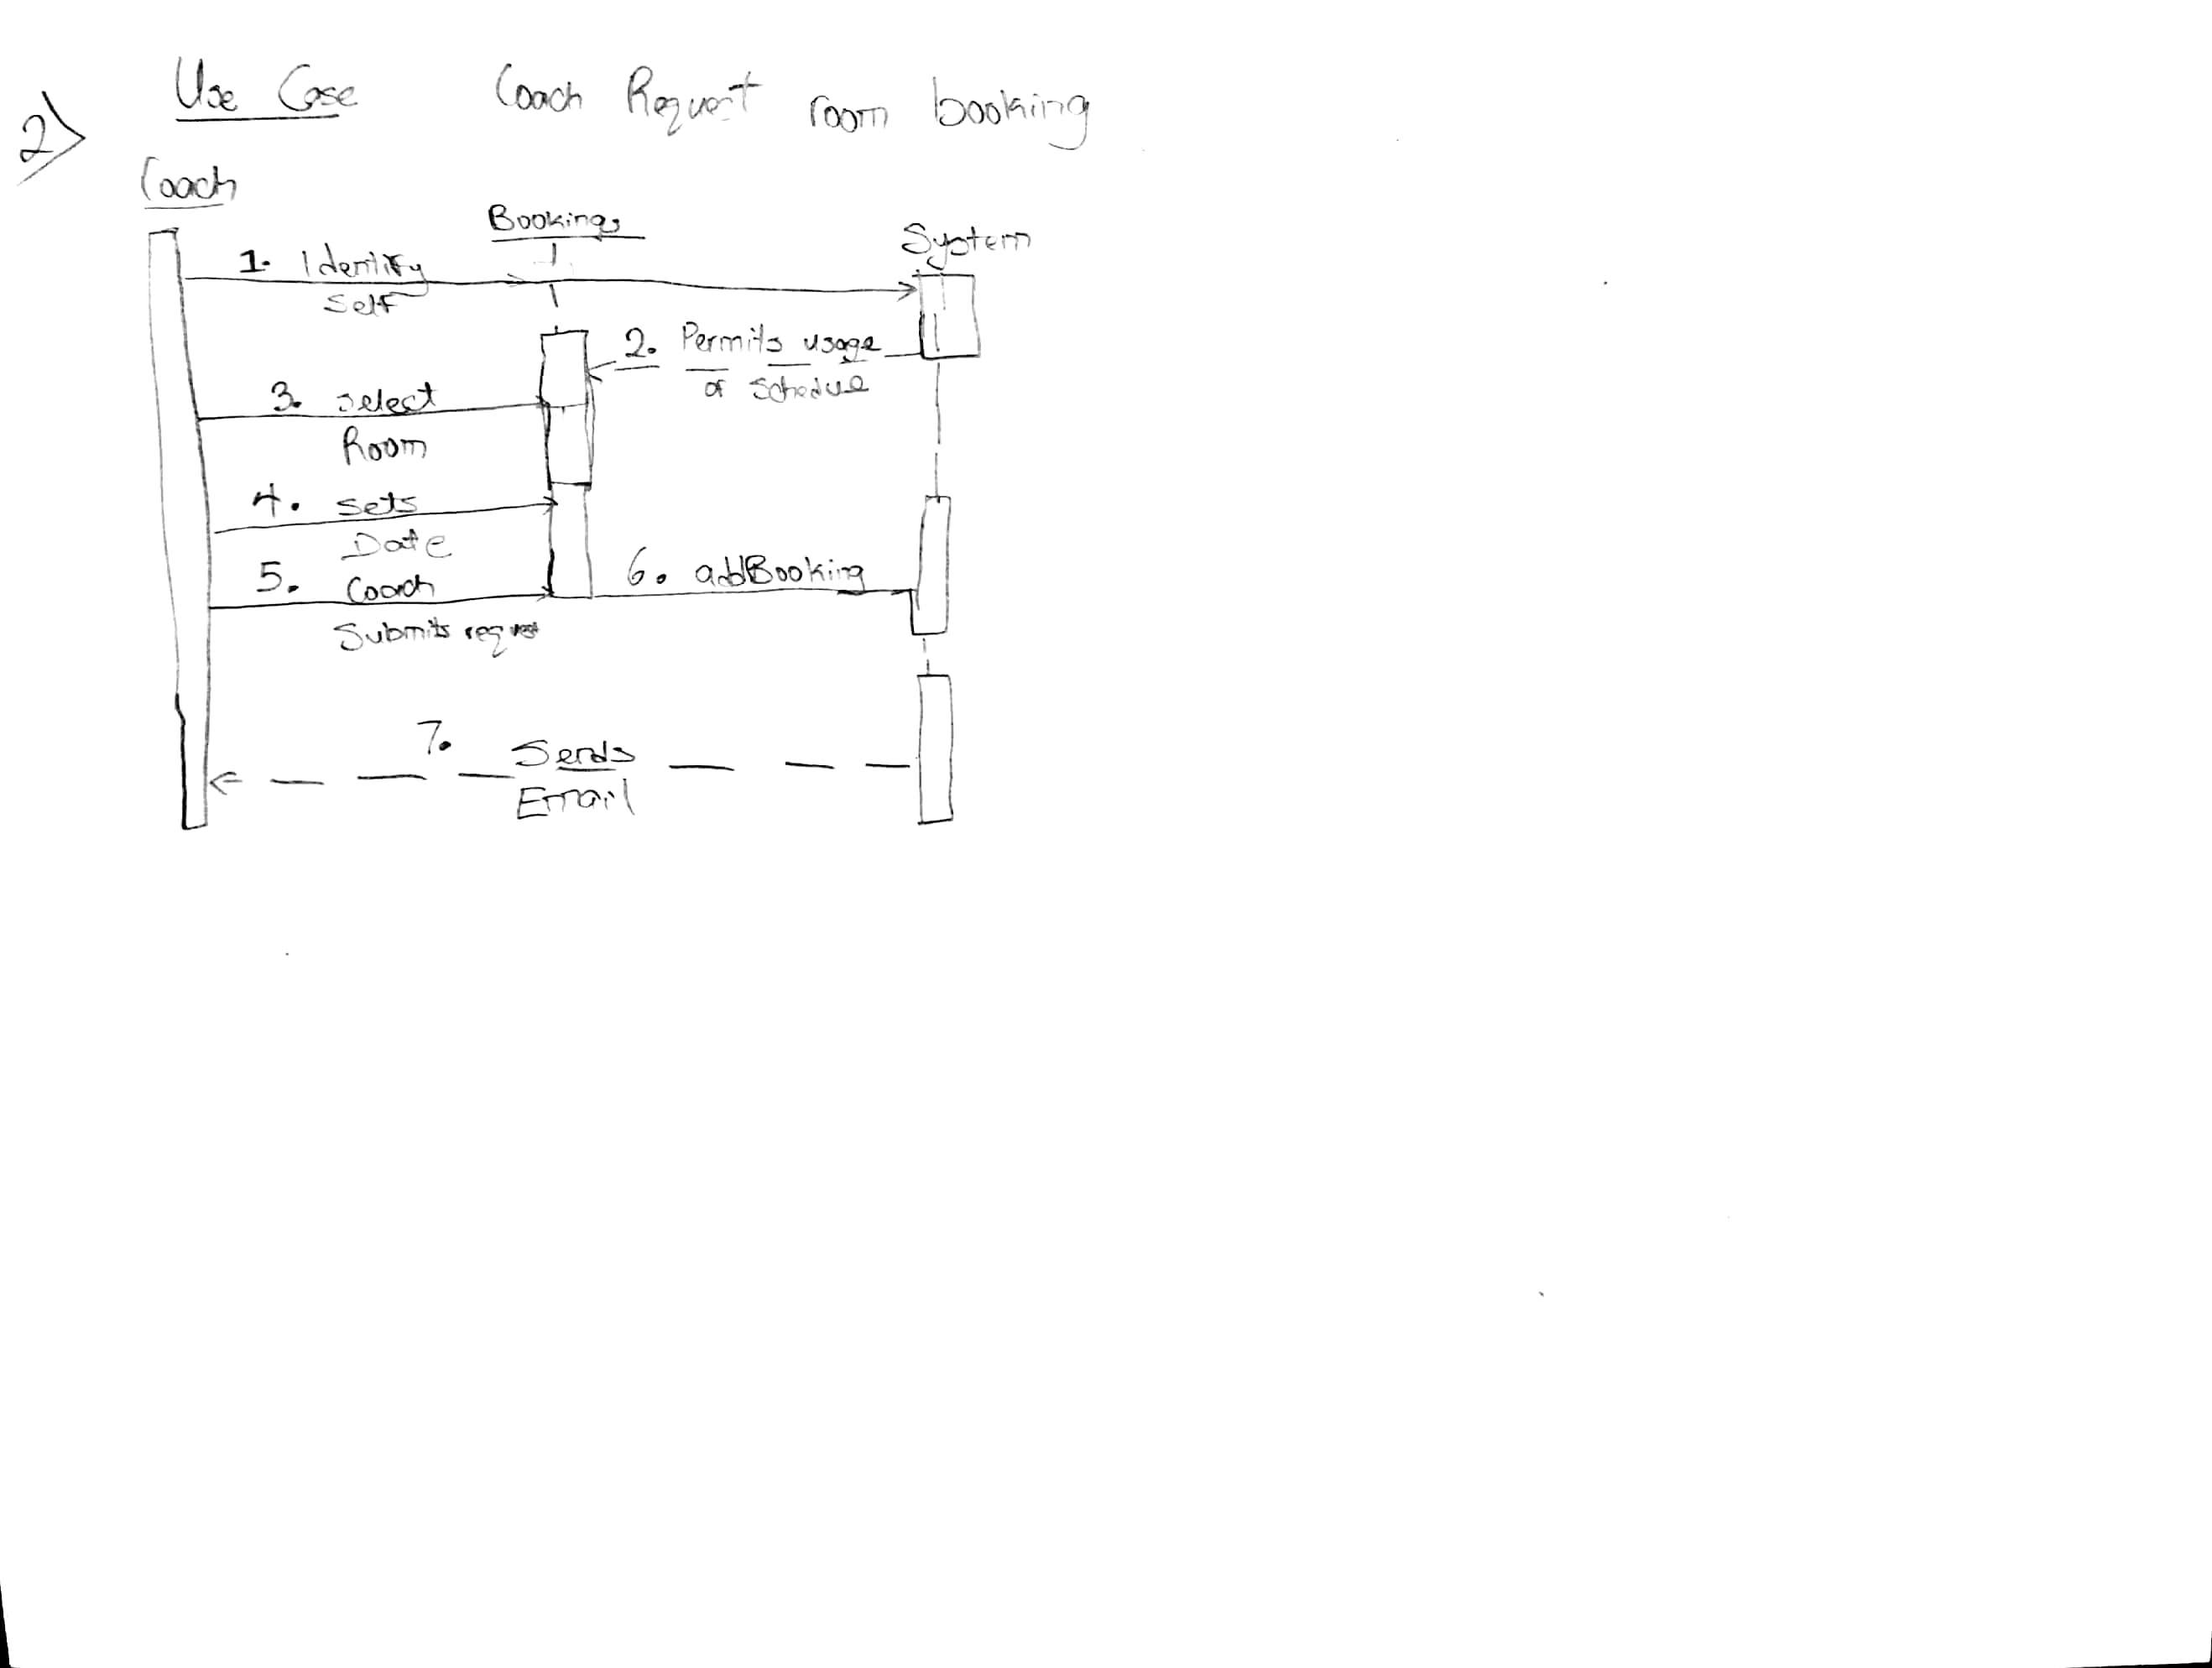 Use Case Coach Request room booking
2)
Coach
Bookings
System
1. Identify
Self
2. Permits usage
of schedule
3. select
Room
4. sets
Date
5. Coach
Submits request
6. addBooking
7. Sends
Email